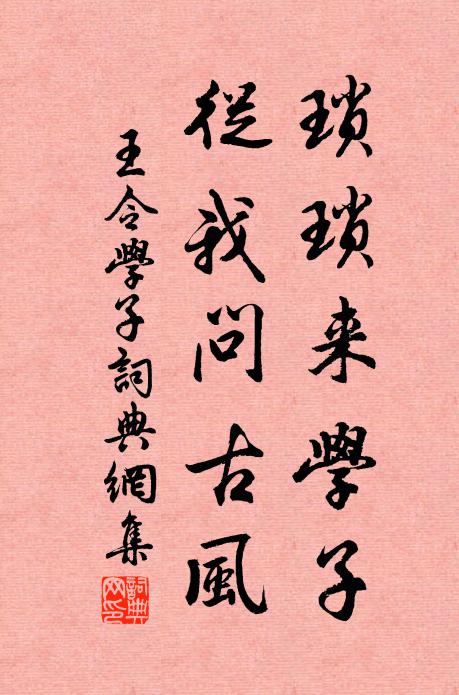 瑣瑣来學子
從我問古風
王令學子詞典網集
詞典網印